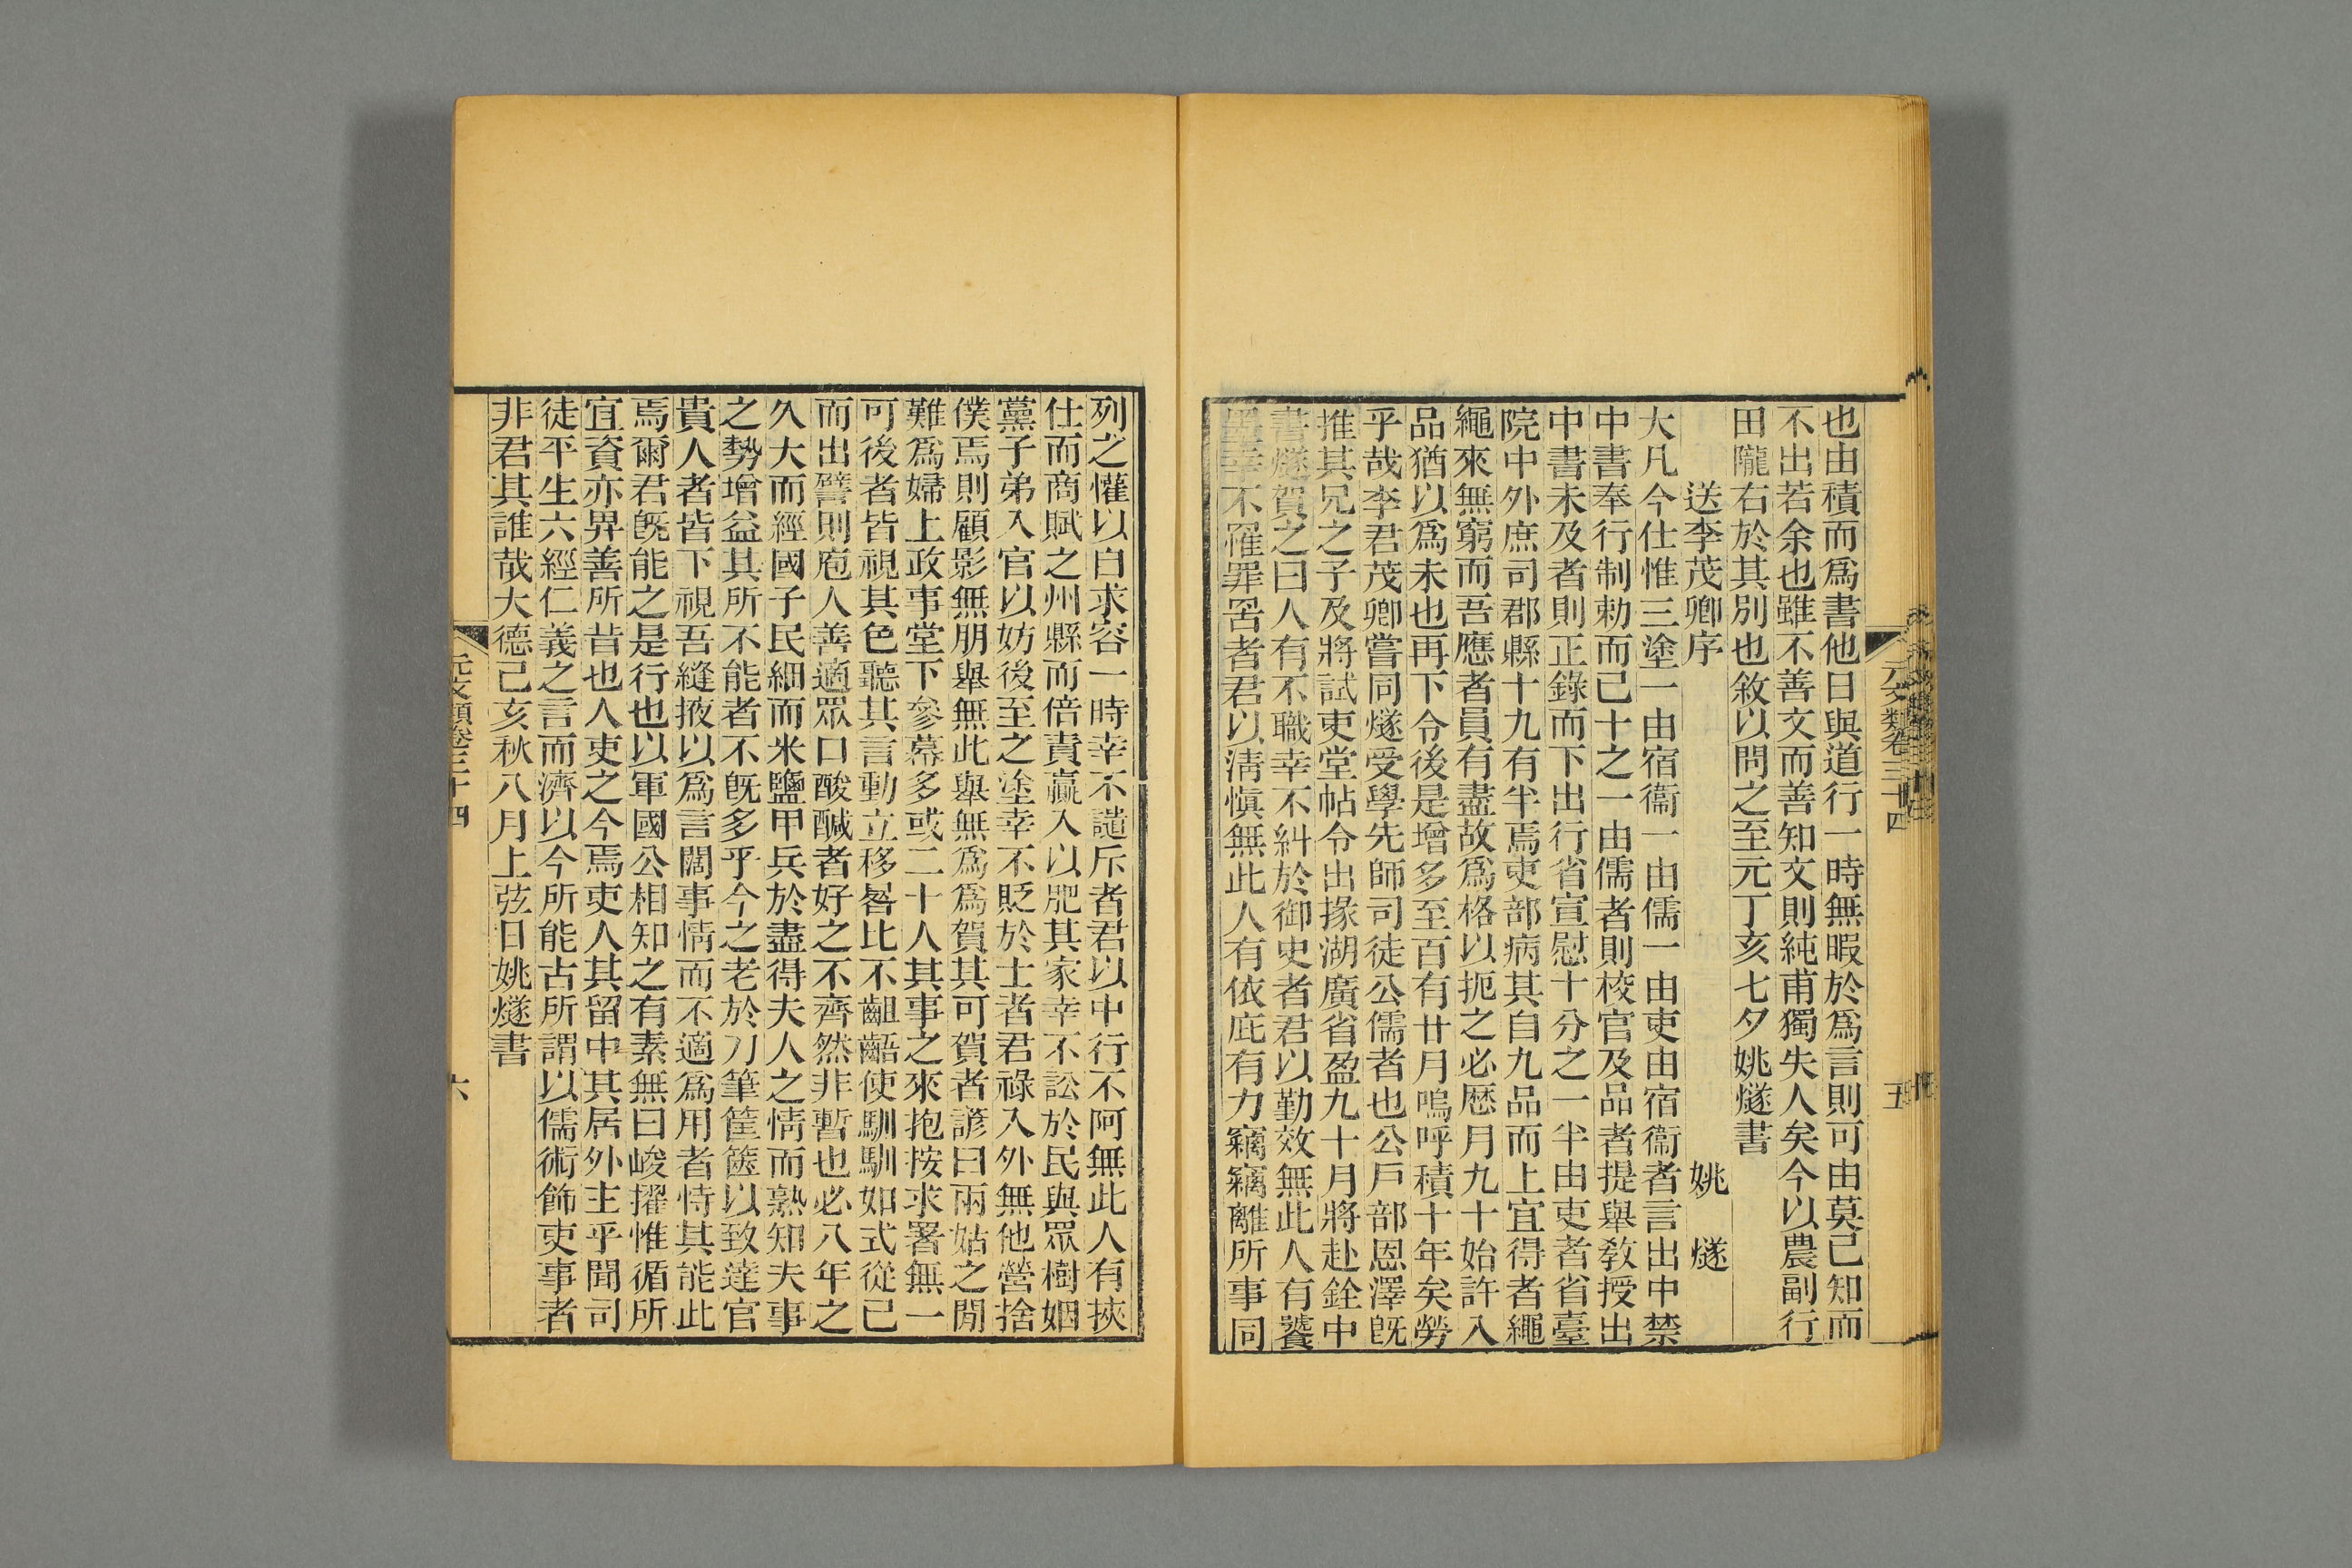 元文類卷三十四
五
也由積而爲書他日與道行一時無暇於爲言則可由莫已知而
不出若余也雖不善文而善知文則純甫獨失人矣今以農副行
田隴右於其別也敘以問之至元丁亥七夕姚燧書
送李茂卿序　姚　燧
大凡今仕惟三塗一由宿衞一由儒一由吏由宿衞者言出中禁
中書奉行制勅而已十之一由儒者則校官及品者提舉敎授出
中書未及者則正錄而下出行省宣慰十分之一半由吏者省臺
院中外庶司郡縣十九有半焉吏部病其自九品而上宜得者繩
繩來無窮而吾應者員有盡故爲格以扼之必歷月九十始許入
品猶以爲未也再下令後是增多至百有廿月嗚呼積十年矣勞
乎哉李君茂卿嘗同燧受學先師司徒公儒者也公戶部恩澤旣
推其兄之子及將試吏堂帖令出掾湖廣省盈九十月將赴銓中
書燧賀之曰人有不職幸不糾於御史者君以勤效無此人有饕
墨幸不罹罪罟者君以淸愼無此人有依庇有力竊竊離所事同
列之懽以白求容一時幸不譴斥者君以中行不阿無此人有挾
仕而商賦之州縣而倍責贏入以肥其家幸不訟於民與眾樹姻
黨子弟入官以妨後至之塗幸不貶於士者君祿入外無他營捨
僕焉則顧影無朋舉無此舉無爲爲賀其可賀者諺曰兩姑之閒
難爲婦上政事堂下參幕多或二十人其事之來抱按求署無一
可後者皆視其色聽其言動立移晷比不齟齬使馴馴如式從已
而出譬則庖人善適眾口酸醎者好之不齊然非暫也必八年之
久大而經國子民細而米鹽甲兵於盡得夫人之情而熟知夫事
之勢增益其所不能者不旣多乎今之老於刀筆筐篋以致達官
貴人者皆下視吾縫掖以爲言闊事情而不適爲用者恃其能此
焉爾君旣能之是行也以軍國公相知之有素無曰峻擢惟循所
宜資亦畀善所昔也人吏之今焉吏人其留中其居外主乎聞司
徒平生六經仁義之言而濟以今所能占所謂以儒術飾吏事者
非君其誰哉大德己亥秋八月上弦日姚燧書
元文類卷三十四
六